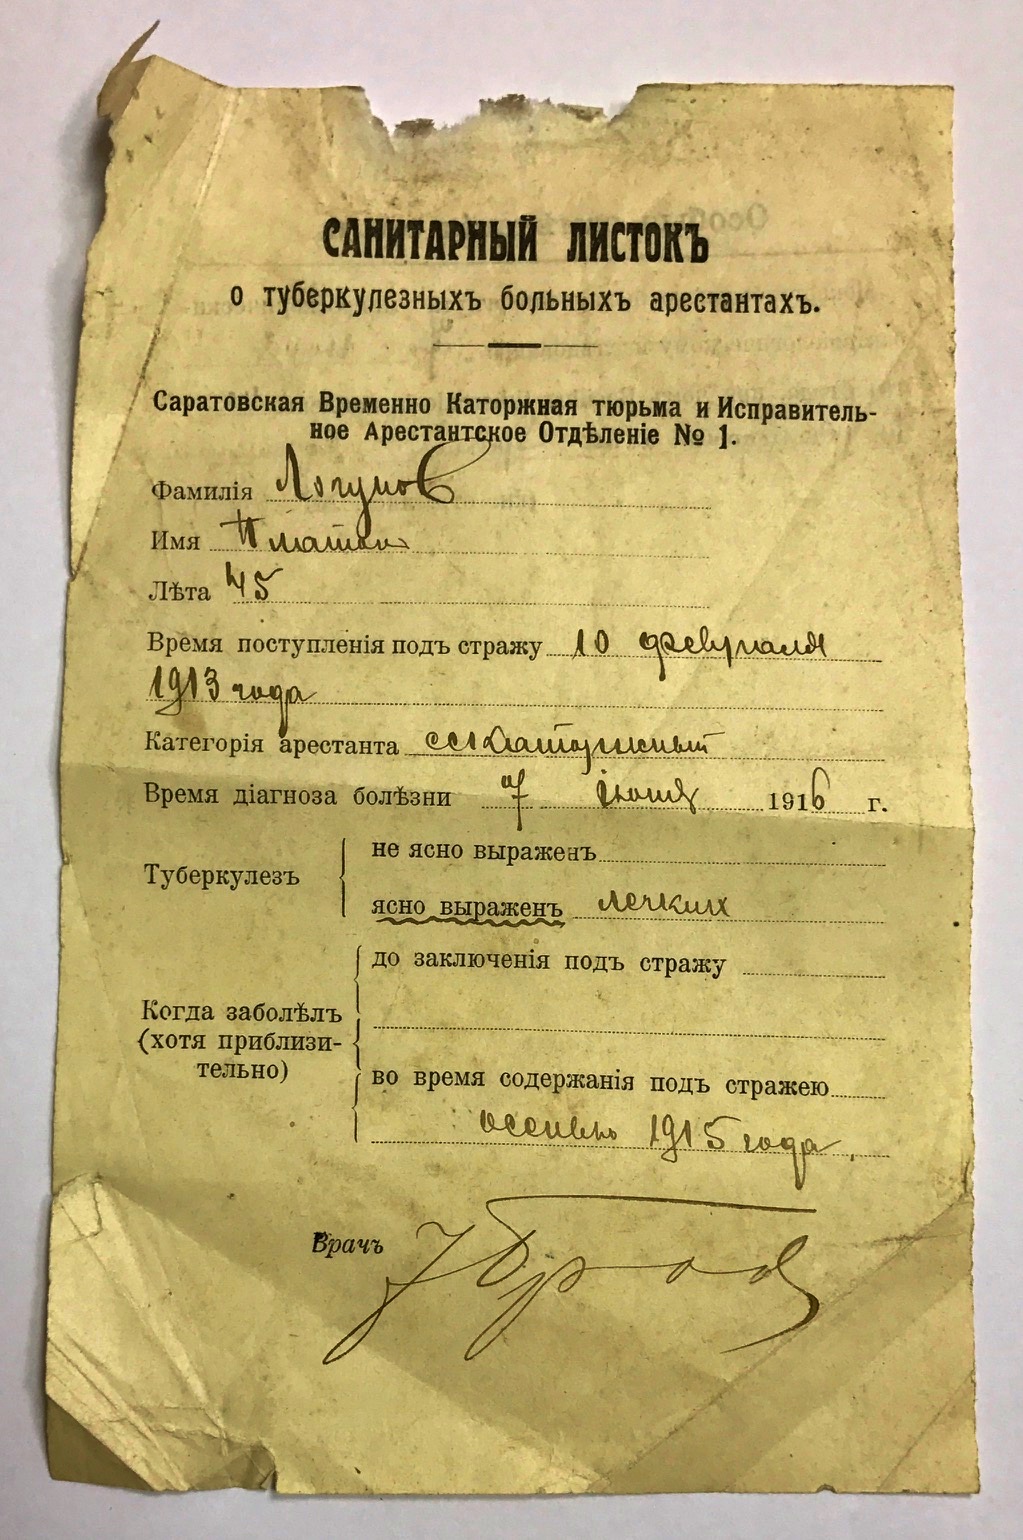 САНИТАРНЫЙ ЛИСТОКЪ
о туберкулезныхъ больныхъ арестантахъ.
Саратовская Временно Каторжная тюрьма и Исправитель-
ное Арестантское Отдѣленіе № 1.
Фамилія Логунов
Имя Платон
Лѣта 45
Время поступленія подъ стражу 10 февраля
1913 года
Категорія арестанта каторжный
Время діагноза болѣзни 7 іюня 1916 г.
Туберкулезъ
не ясно выраженъ
ясно выраженъ легких
Когда заболѣлъ
(хотя приблизи-
тельно)
до заключенія подъ стражу
во время содержанія подъ стражею
осенью 1915 года
Врачъ